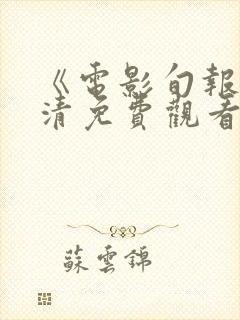 《電影旬報
清免費觀看
蘇雲錦